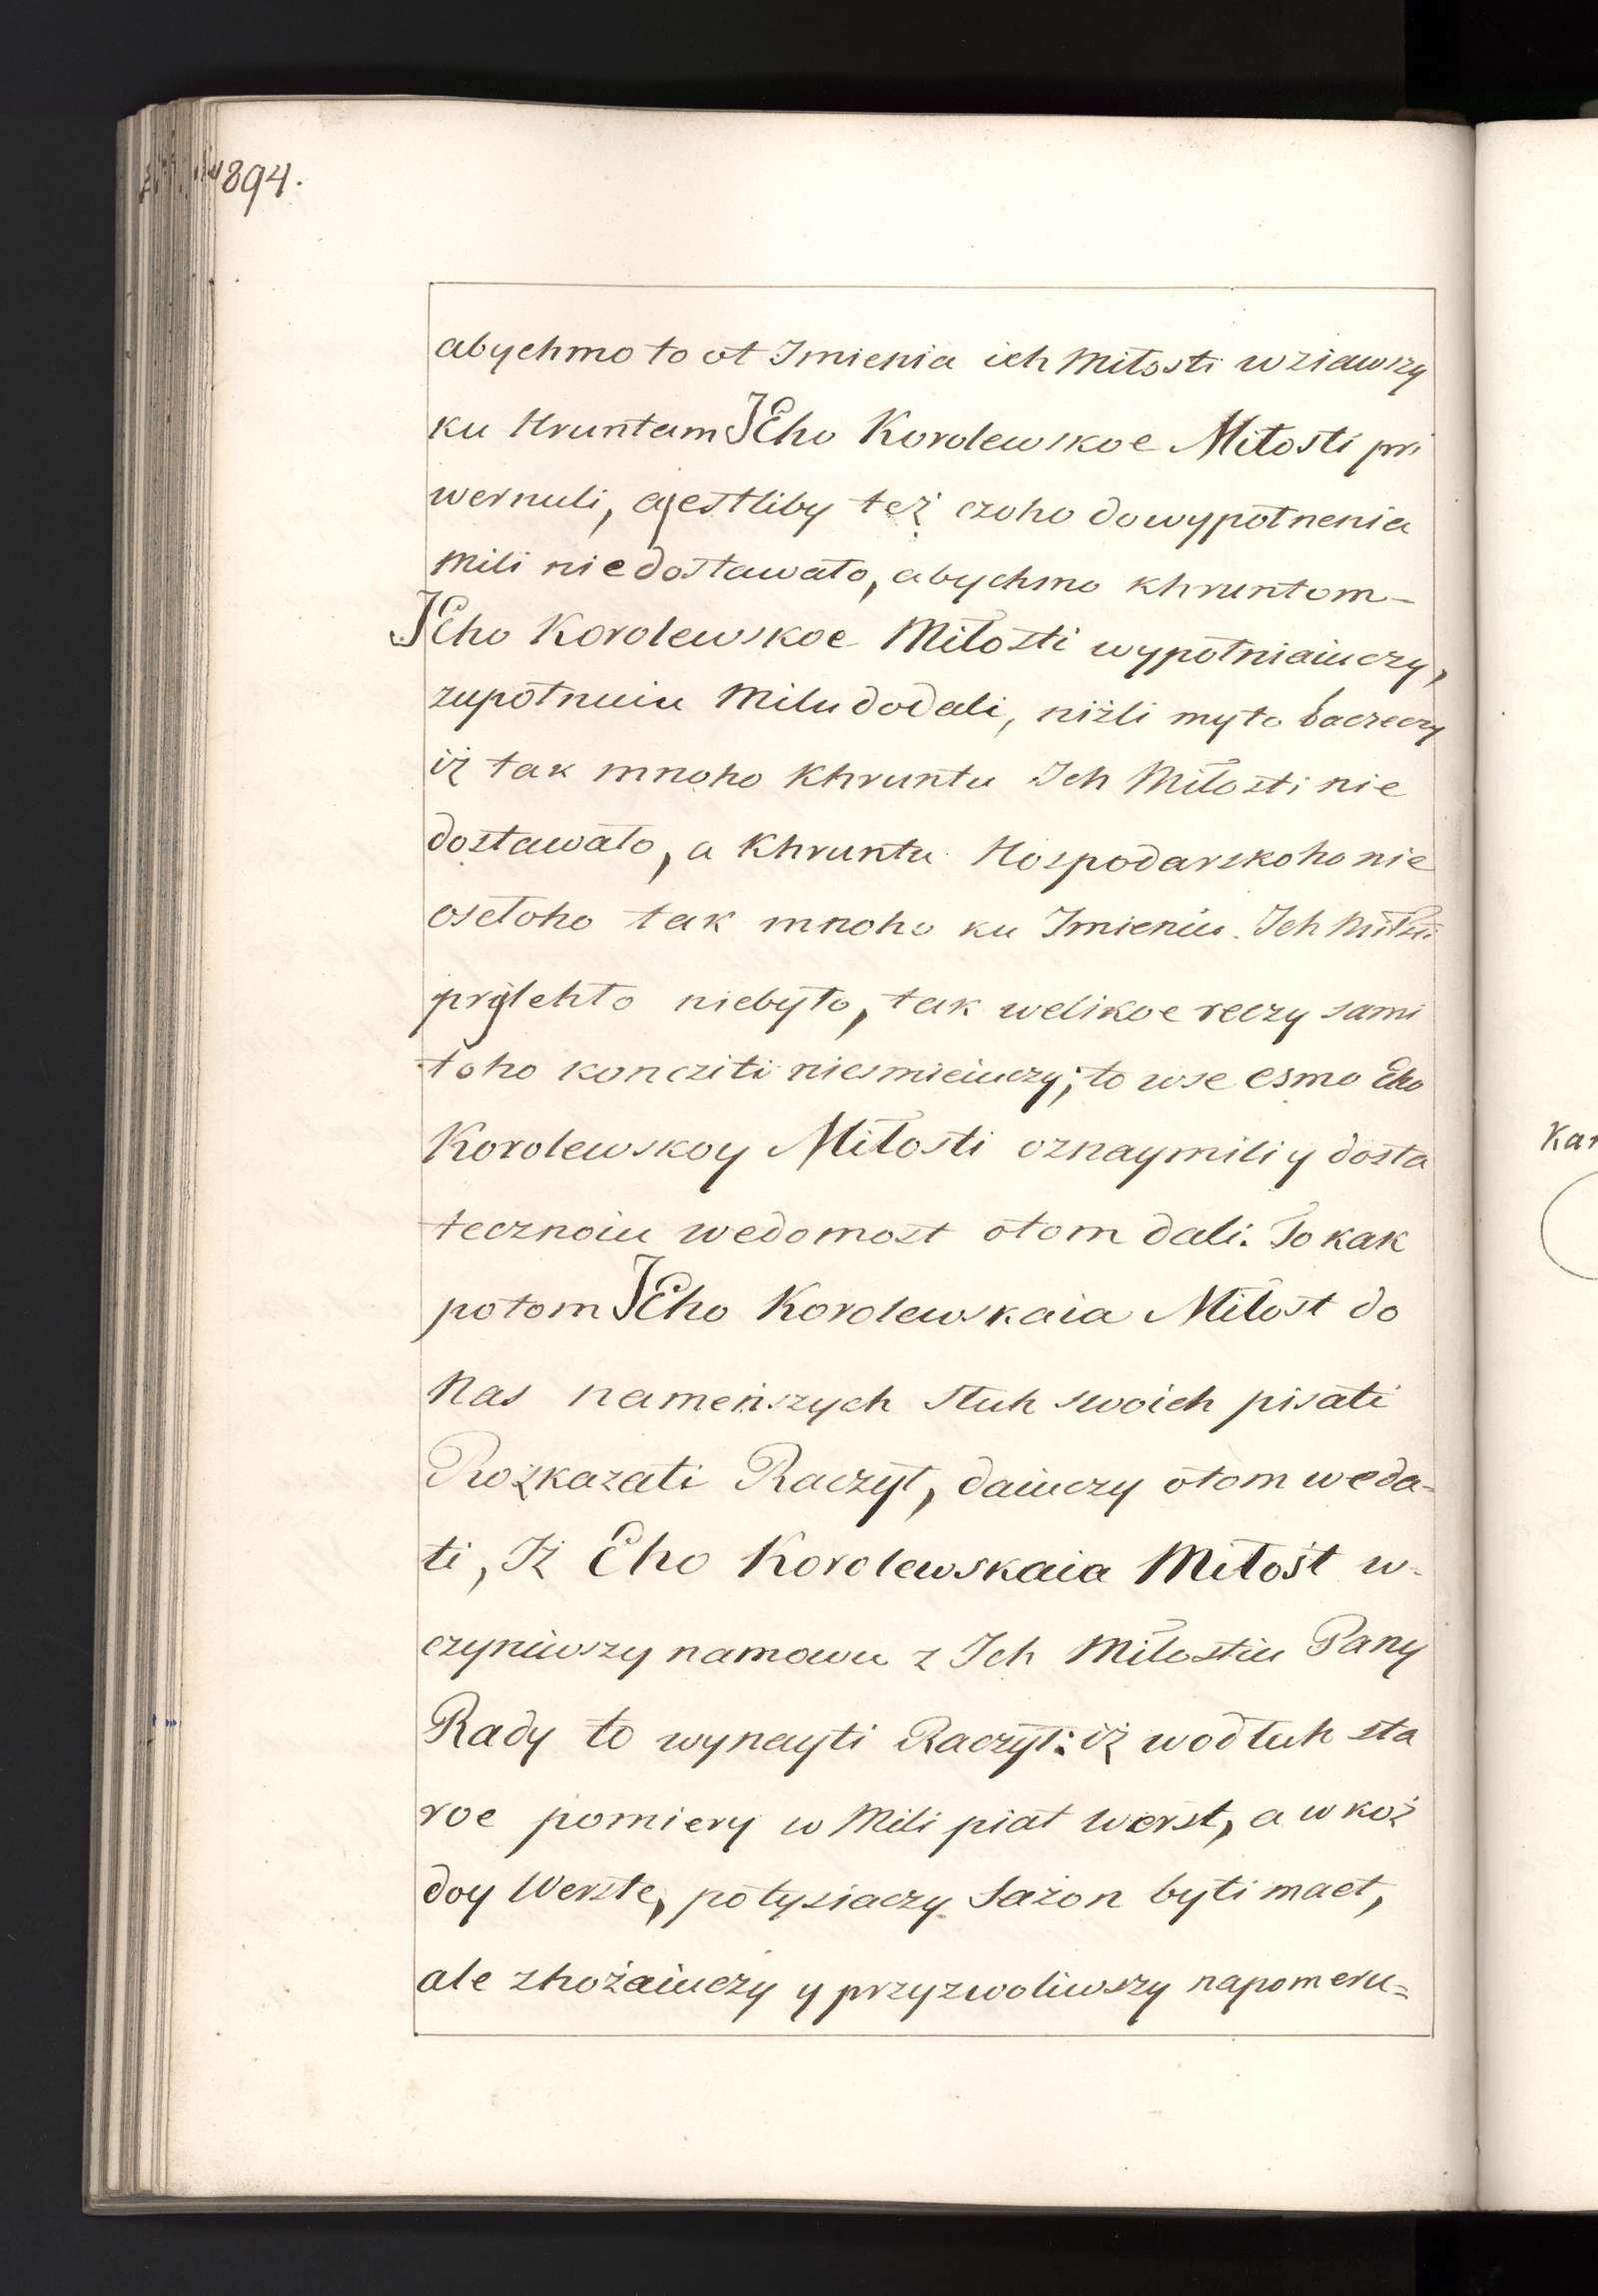 894.
abychmo to ot Imienia ich Miłosti wziawszy
ku Hruntam JEho Korolewskoe Miłosti pri
wernuli, ajestliby też czoho dowypołnenia
Mili niedostawało, abychmo khruntom-
JEho Korolewskoe Miłosti wypołniaiuczy,
zupołnuiu Milu dodali, niżli myto baczeczy
iż tak mnoho Khruntu Ich Miłosti nie
dostawało, a Khruntu Hospodarskoho nie
osełoho tak mnoho ku Imieniu Ich Miłsti
prijlehło niebyło, tak welikoe reczy sami
toho koncziti niesmieiuczy; to wse esmo Eho
Korolewskoy Miłosti oznaymili y dosta
tecznoiu wedomost otom dali. To kak
potom JEho Korolewskaia Miłost do
Nas nameńszych słuh swoich pisati
Rozkazati Raczył, daiuczy otom weda-
ti, Iż Eho Korolewskaia Miłost w-
czyniwszy namowu z Ich Miłostiu Pany
Rady to wynayti Raczył: iż wodłuh sta
roe pomiery w Mili piat worst, a w koż
doy Werste, po tysiaczy Sażon byti maet,
ale zhożaiuczy y przyzwoliwszy napomeru=
Kar